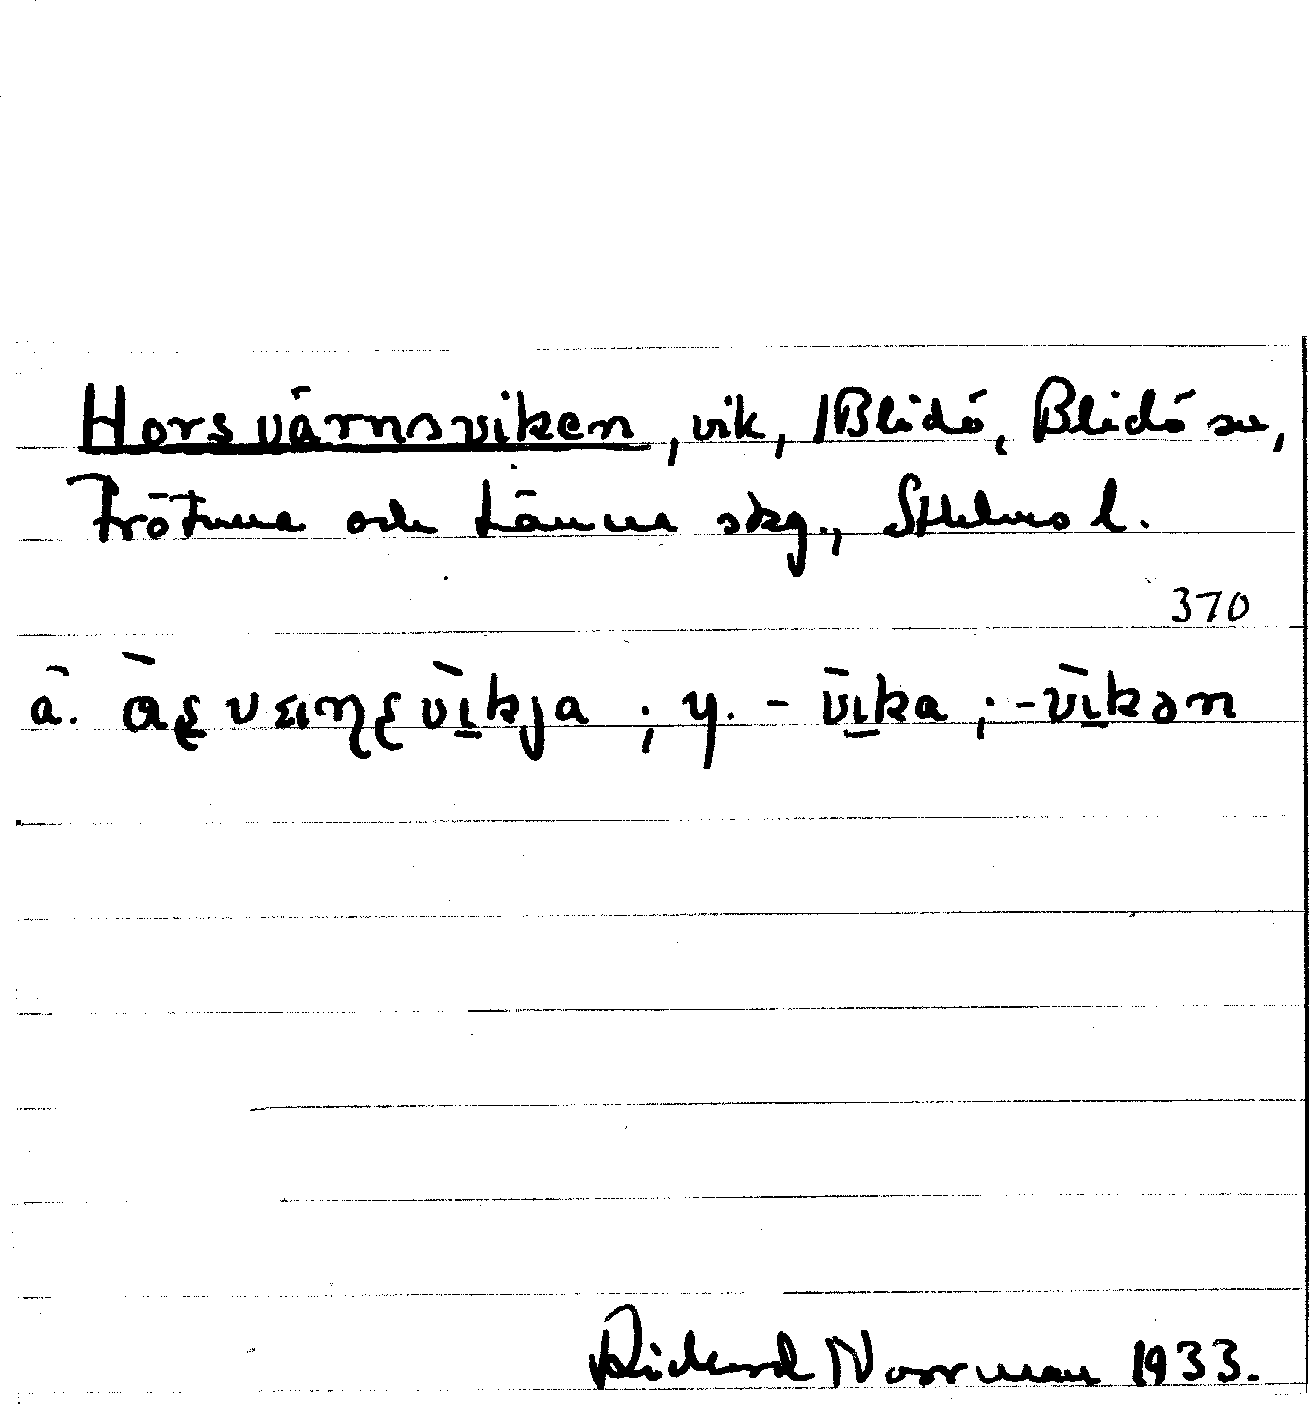 Horsvärnsviken, vik, /Blidö, Blidö sn,
Frötuna och Länna skg., Sthlms l.
370
ä. y. -vika; -vikən
Rickard Norrman 1933.